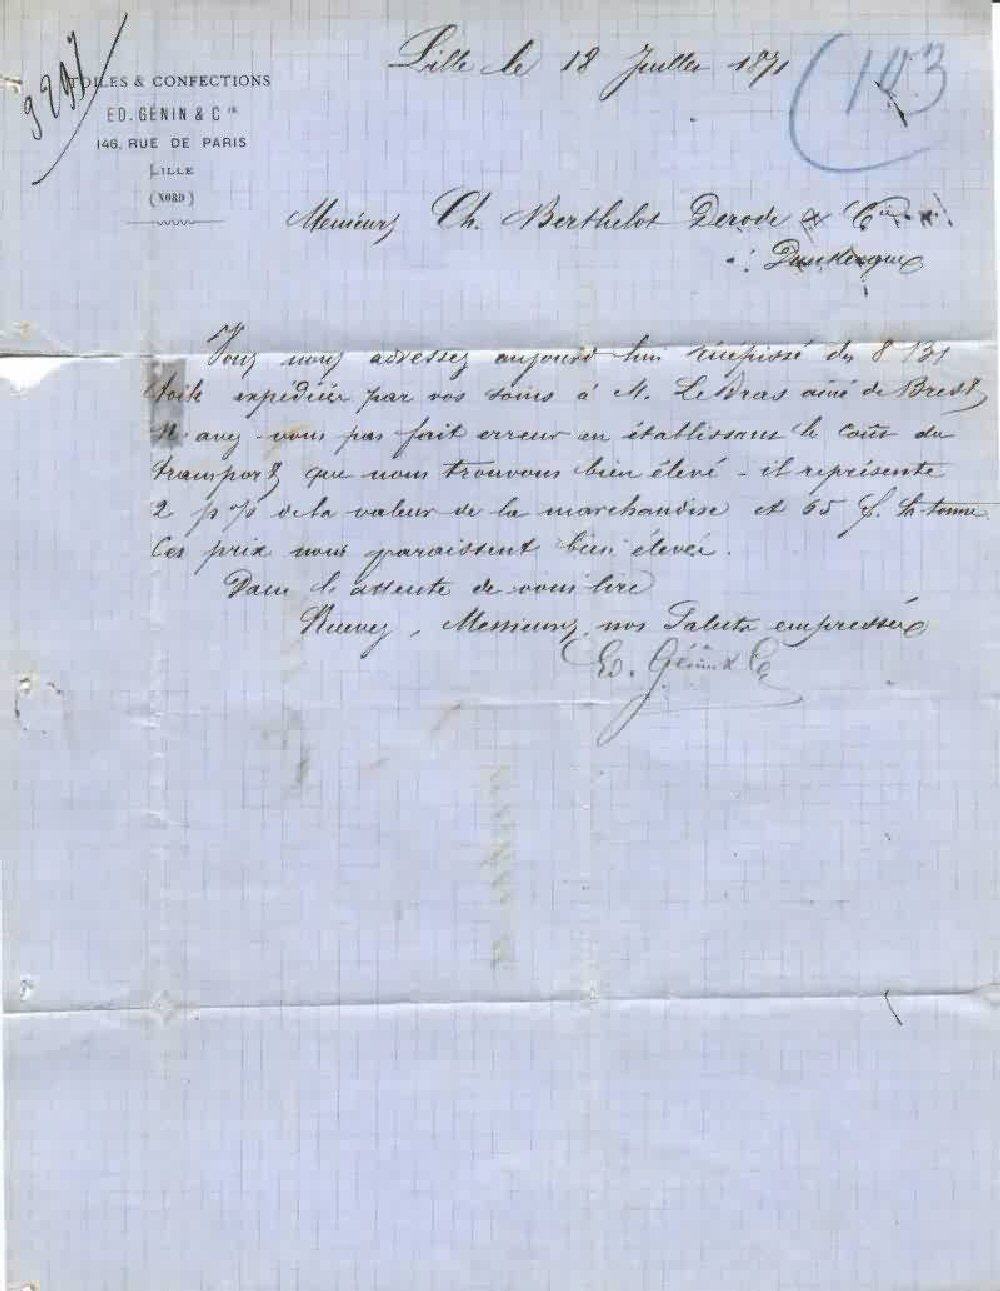 9292
TOILES & CONFECTIONS
ED. GENIN & Cie
146, RUE DE PARIS
LILLE
(NORD)
Lille le 18 Juillet 1871
143
Messieurs Ch. Berthelot Derode & Cie
Dunkerque
Vous nous adressez aujourd'hui récépissé du 8 131
toile expédiée par vos soins à M. Le Bras aîné de Brest
N'avez-vous pas fait erreur en établissant le coût du
transport que nous trouvons bien élevé - il représente
2 p % de la valeur de la marchandise et 65 f. la tonne
Ces prix nous paraissent bien élevés.
Dans l'attente de vous lire
Recevez, Messieurs, nos Saluts empressés
Ed. Génin & Cie